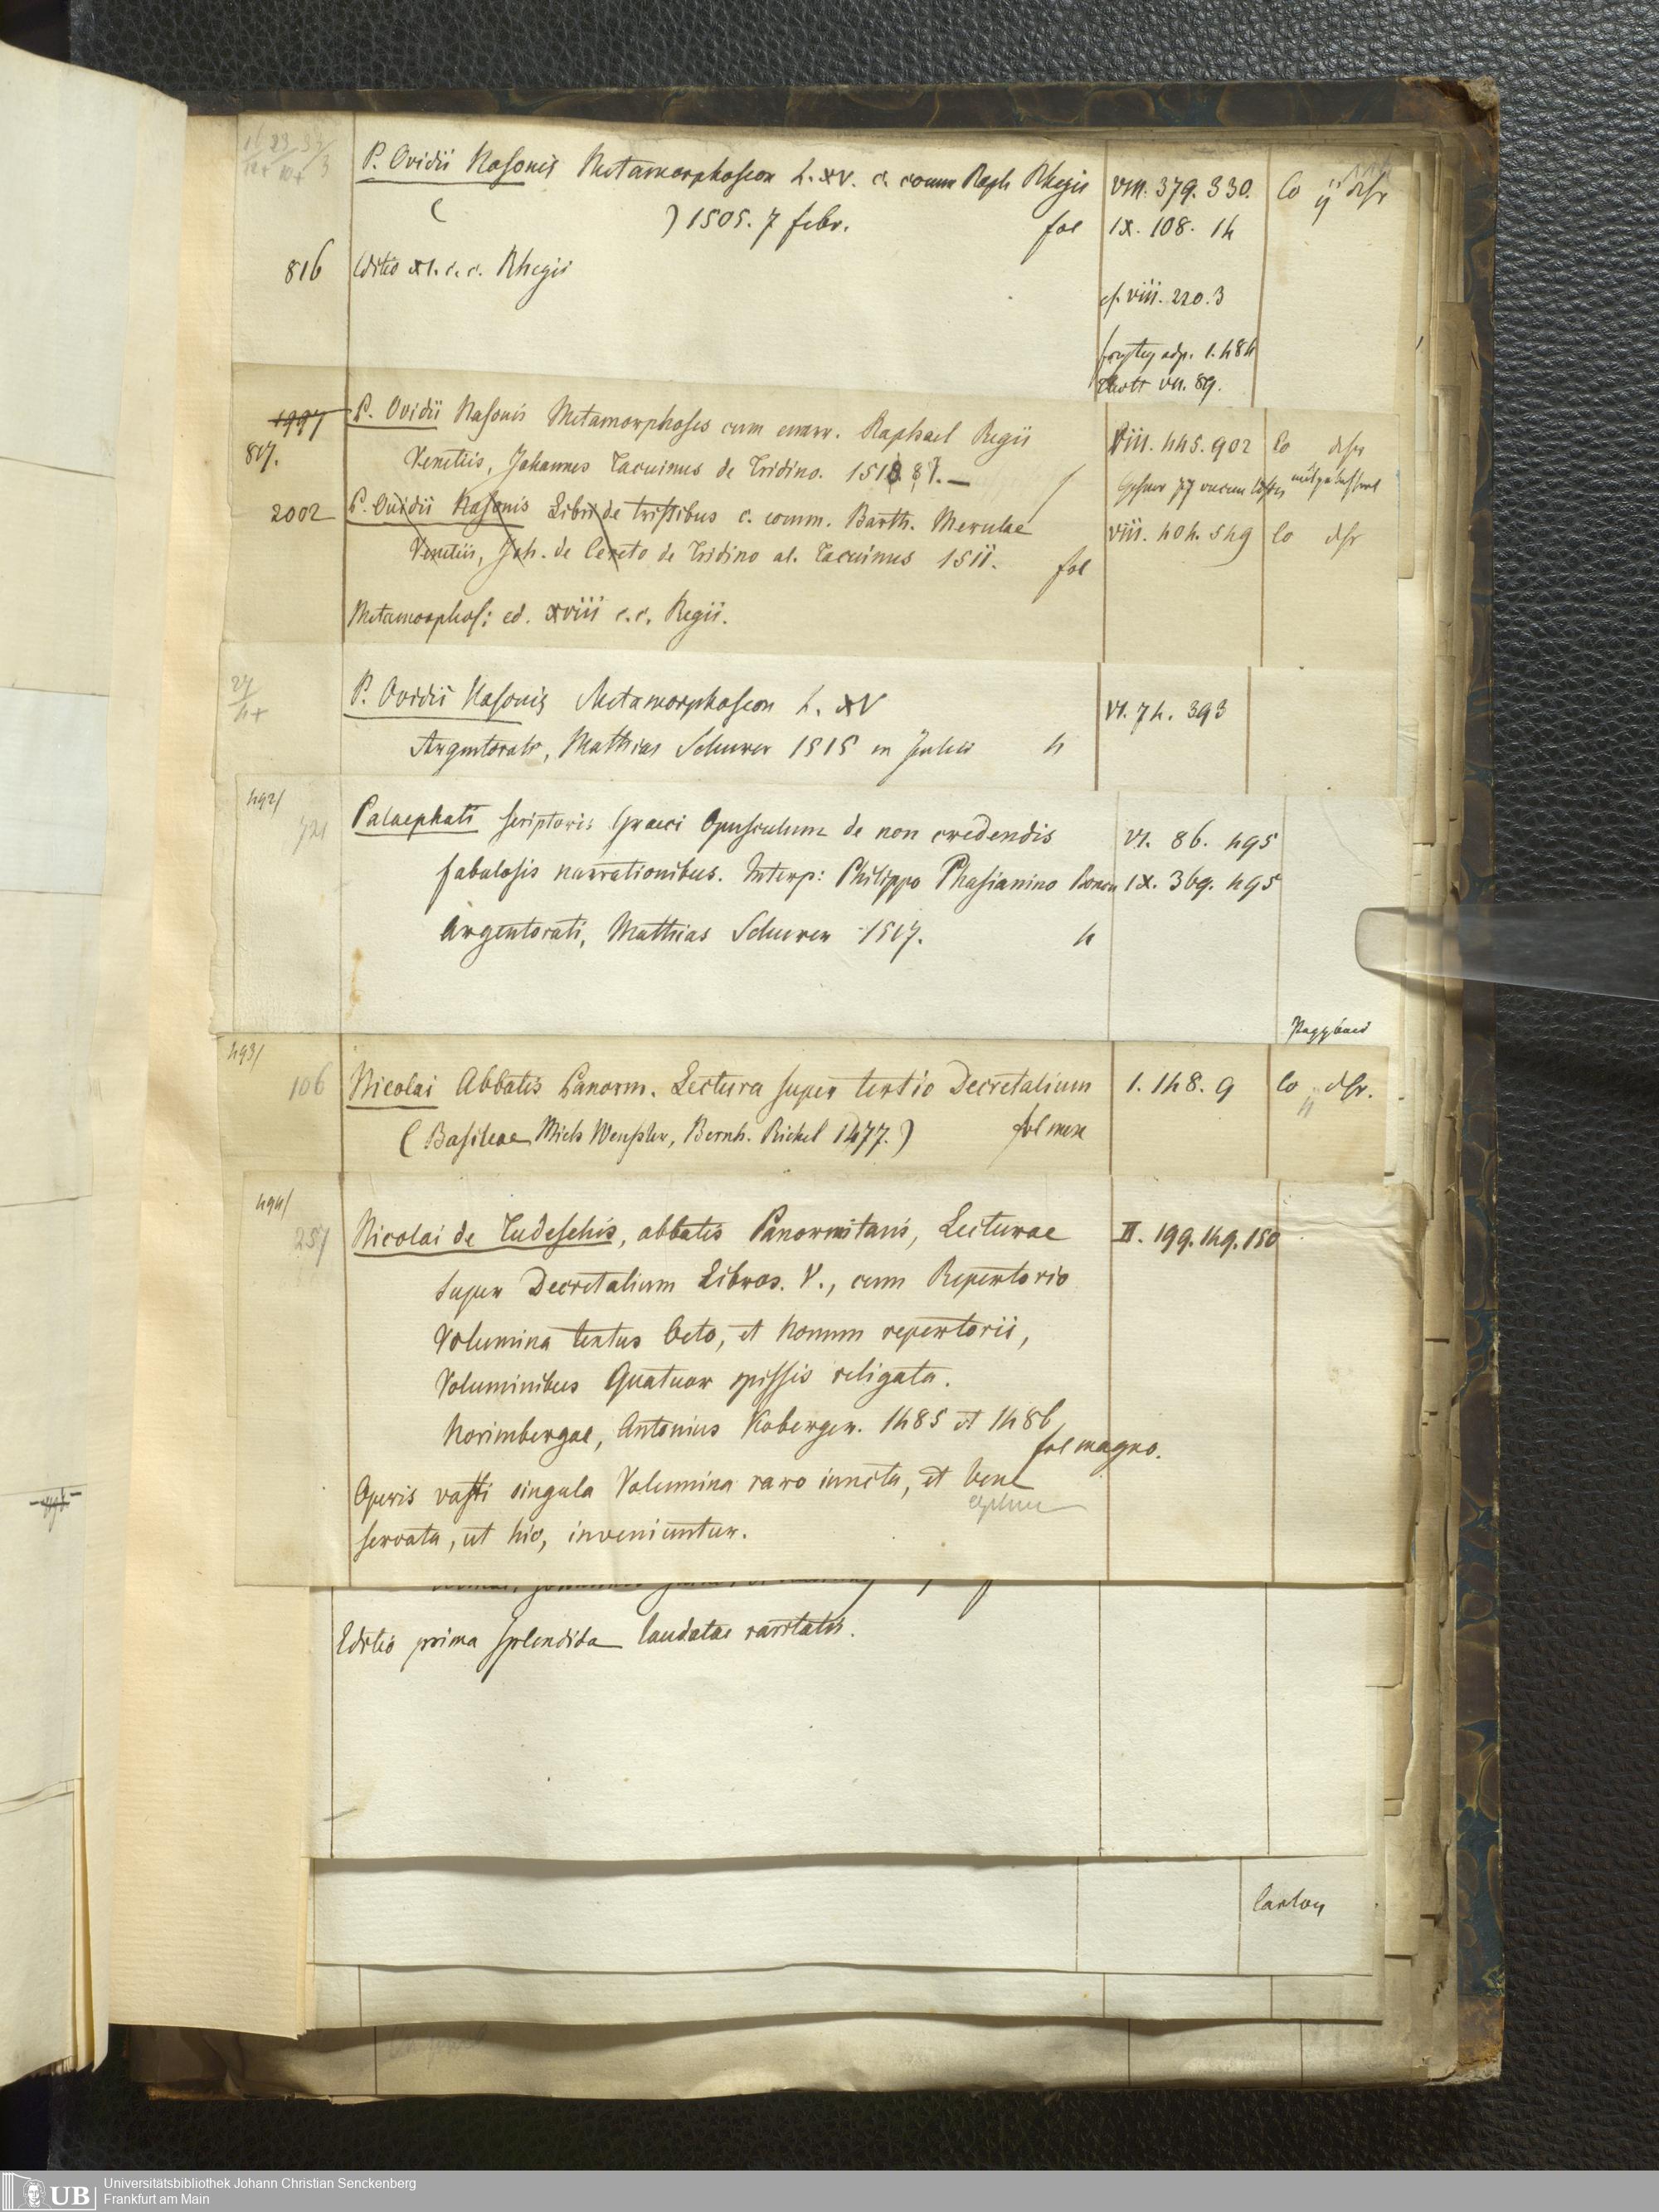 P. Ovidii Nasonis Metamorphoseon L. XV. c. comm Raph Rhegii VIII. 379. 330. Co
( ) 1505. 7 febr. fol IX. 108. 14
816 Editio XI. c. c. Rhegii
cf. VIII. 220. 3
1. 484
VII. 89.
1997 P. Ovidii Nasonis Metamorphoses cum enarr. Raphael Regii VIII. 445. 902 Co
817. Venetiis, Johannes Tacuinus de Tridino. 1518
2002 P. Ovidii Nasonis Libri de tristibus c. comm. Barth. Merulae VIII. 404. 549 Co
Venetiis, Joh. de Cereto de Tridino al. Tacuinus 1511. fol
Metamorphos: ed. XVIII c. c. Regii.
27
4+
P. Ovidii Nasonis Metamorphoseon L. XV VI. 74. 393
Argentorati, Mathias Schurer 1515 m Julii 4
492/
721 Palaephati scriptoris Graeci Opusculum de non credendis VI. 86. 495
fabulosis narrationibus. Interp: Philippo Phasianino Bonon IX. 369. 495
Argentorati, Matthias Schurer 1517. 4
493/
106 Nicolai Abbatis Panorm. Lectura super tertio Decretalium 1. 148. 9 Co
(Basileae Mich Wenssler, Bernh. Richel 1477.) fol max
494/
257 Nicolai de Tudeschis, abbatis Panormitani, Lecturae II. 199. 149. 150
super Decretalium Libros. V., cum Repertorio
Volumina textus Octo, et Nonum repertorii,
Voluminibus Quatuor spissis religata.
Norimbergae, Antonius Koberger. 1485 et 1486
fol magno.
Operis vasti singula Volumina raro iuncta, et bene
servata, ut hic, inveniuntur.
Editio prima splendida laudatae raritatis.
Carton
UB
Universitätsbibliothek Johann Christian Senckenberg
Frankfurt am Main